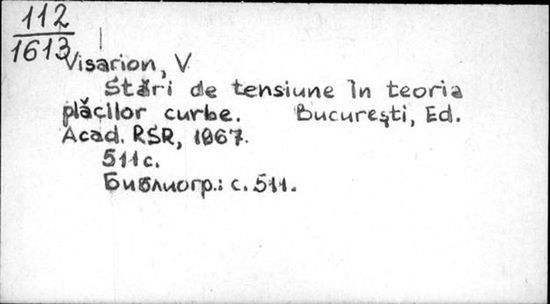 112
1613
Visarion, V.
Stări de tensiune în teoria
plăcilor curbe. Bucureşti, Ed.
Acad. RSR, 1967.
511 c.
Библиогр.: с. 511.